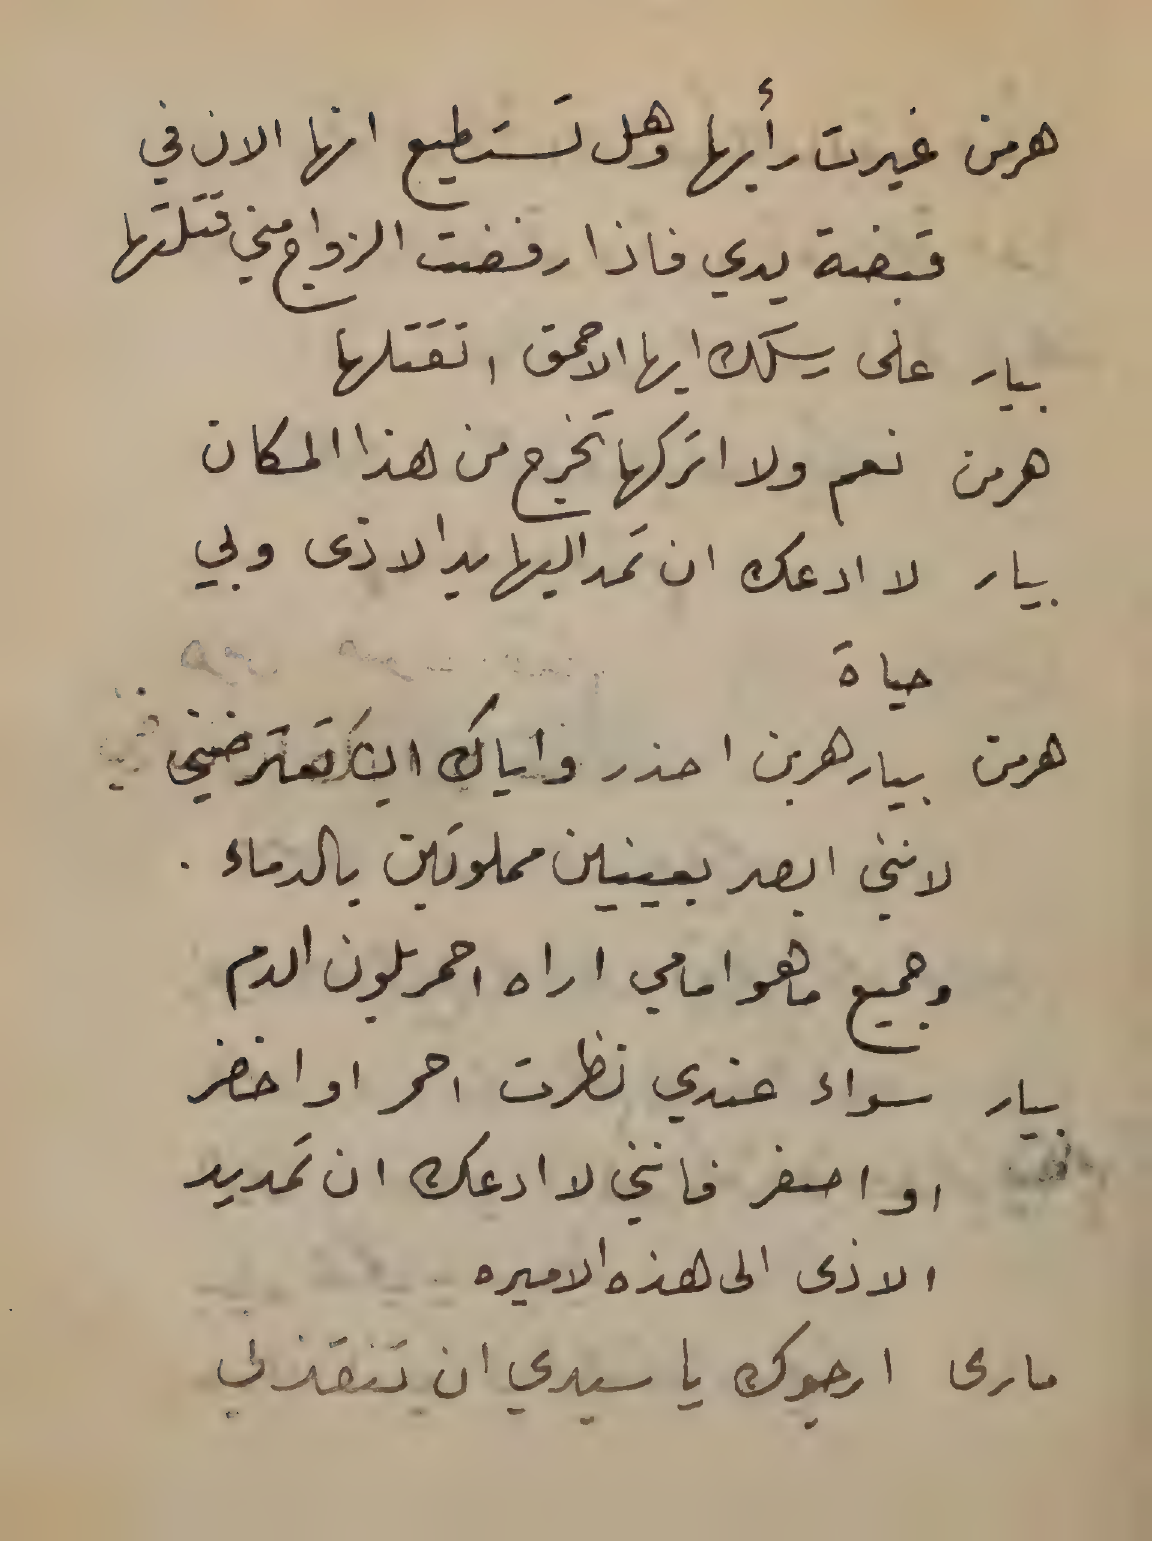 هرمن غيرت رأيها وهل تستطيع انها الان في
قبضة يدي فاذا رفضت الزواج مني قتلتها
بيار على رسلك ايها الاحمق اتقتلها
هرمن نعم ولا اتركها تخرج من هذا المكان
بيار لا ادعك ان تمد اليها يد الاذى وبي
حياة
هرمن بيار هربن احذر واياك ان تعترضني
لانني ابصر بعينين مملوتين بالدماء .
وجميع ما هو امامي اراه احمر بلون الدم
بيار سواء عندي نظرت احمر او اخضر
او اصفر فانني لا ادعك ان تمد يد
الاذى الى هذه الاميره
مارى ارجوك يا سيدي ان تنقذني